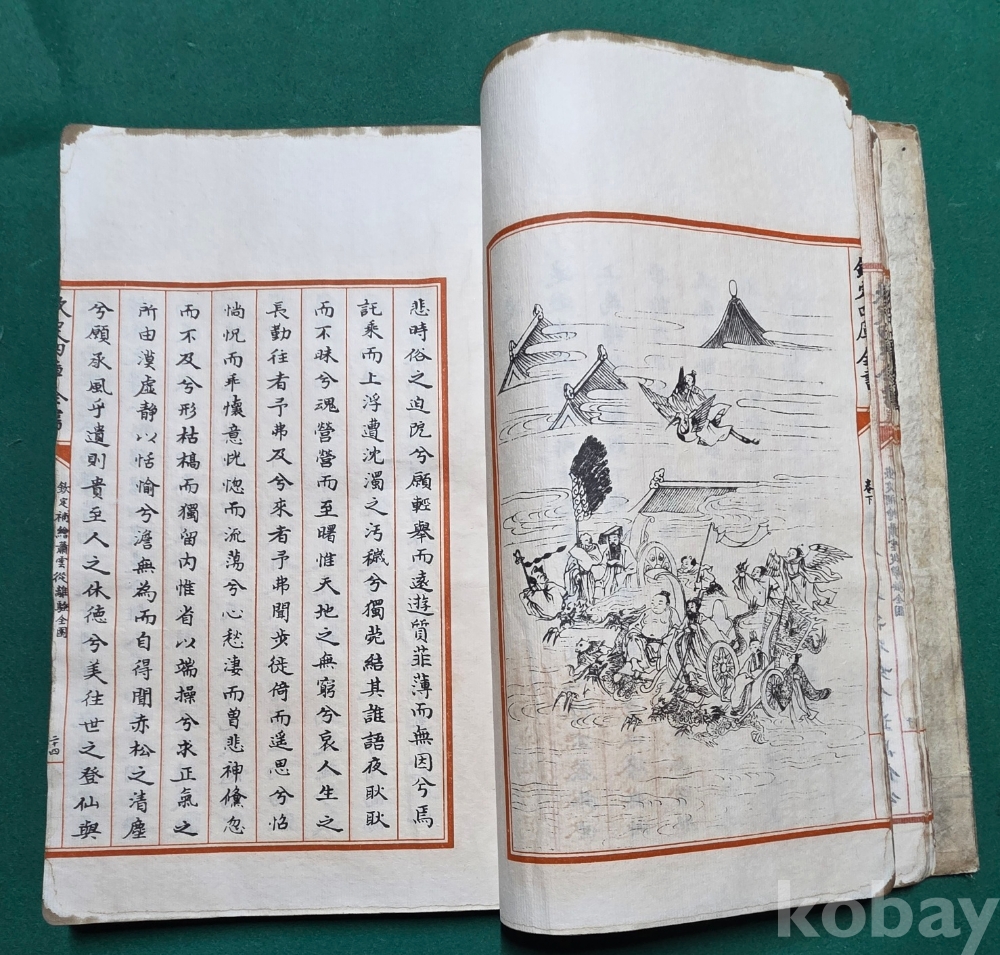 欽定四庫全書
卷下
悲時俗之迫阨兮願輕舉而遠遊質菲薄而無因兮焉
託乘而上浮遭沈濁之汚穢兮獨菀結其誰語夜耿耿
而不昧兮魂營營而至曙惟天地之無窮兮哀人生之
長勤往者予弗及兮來者予弗聞步徙倚而遥思兮怊
惝怳而乖懷意恍惚而流蕩兮心愁凄而曾悲神儵忽
而不及兮形枯槁而獨留内惟省以端操兮求正氣之
所由漠虛靜以恬愉兮澹無為而自得聞赤松之清塵
兮願承風乎遺則貴至人之休徳兮美往世之登仙與
欽定補繪蕭雲從離騷全圖
二十四
kobay